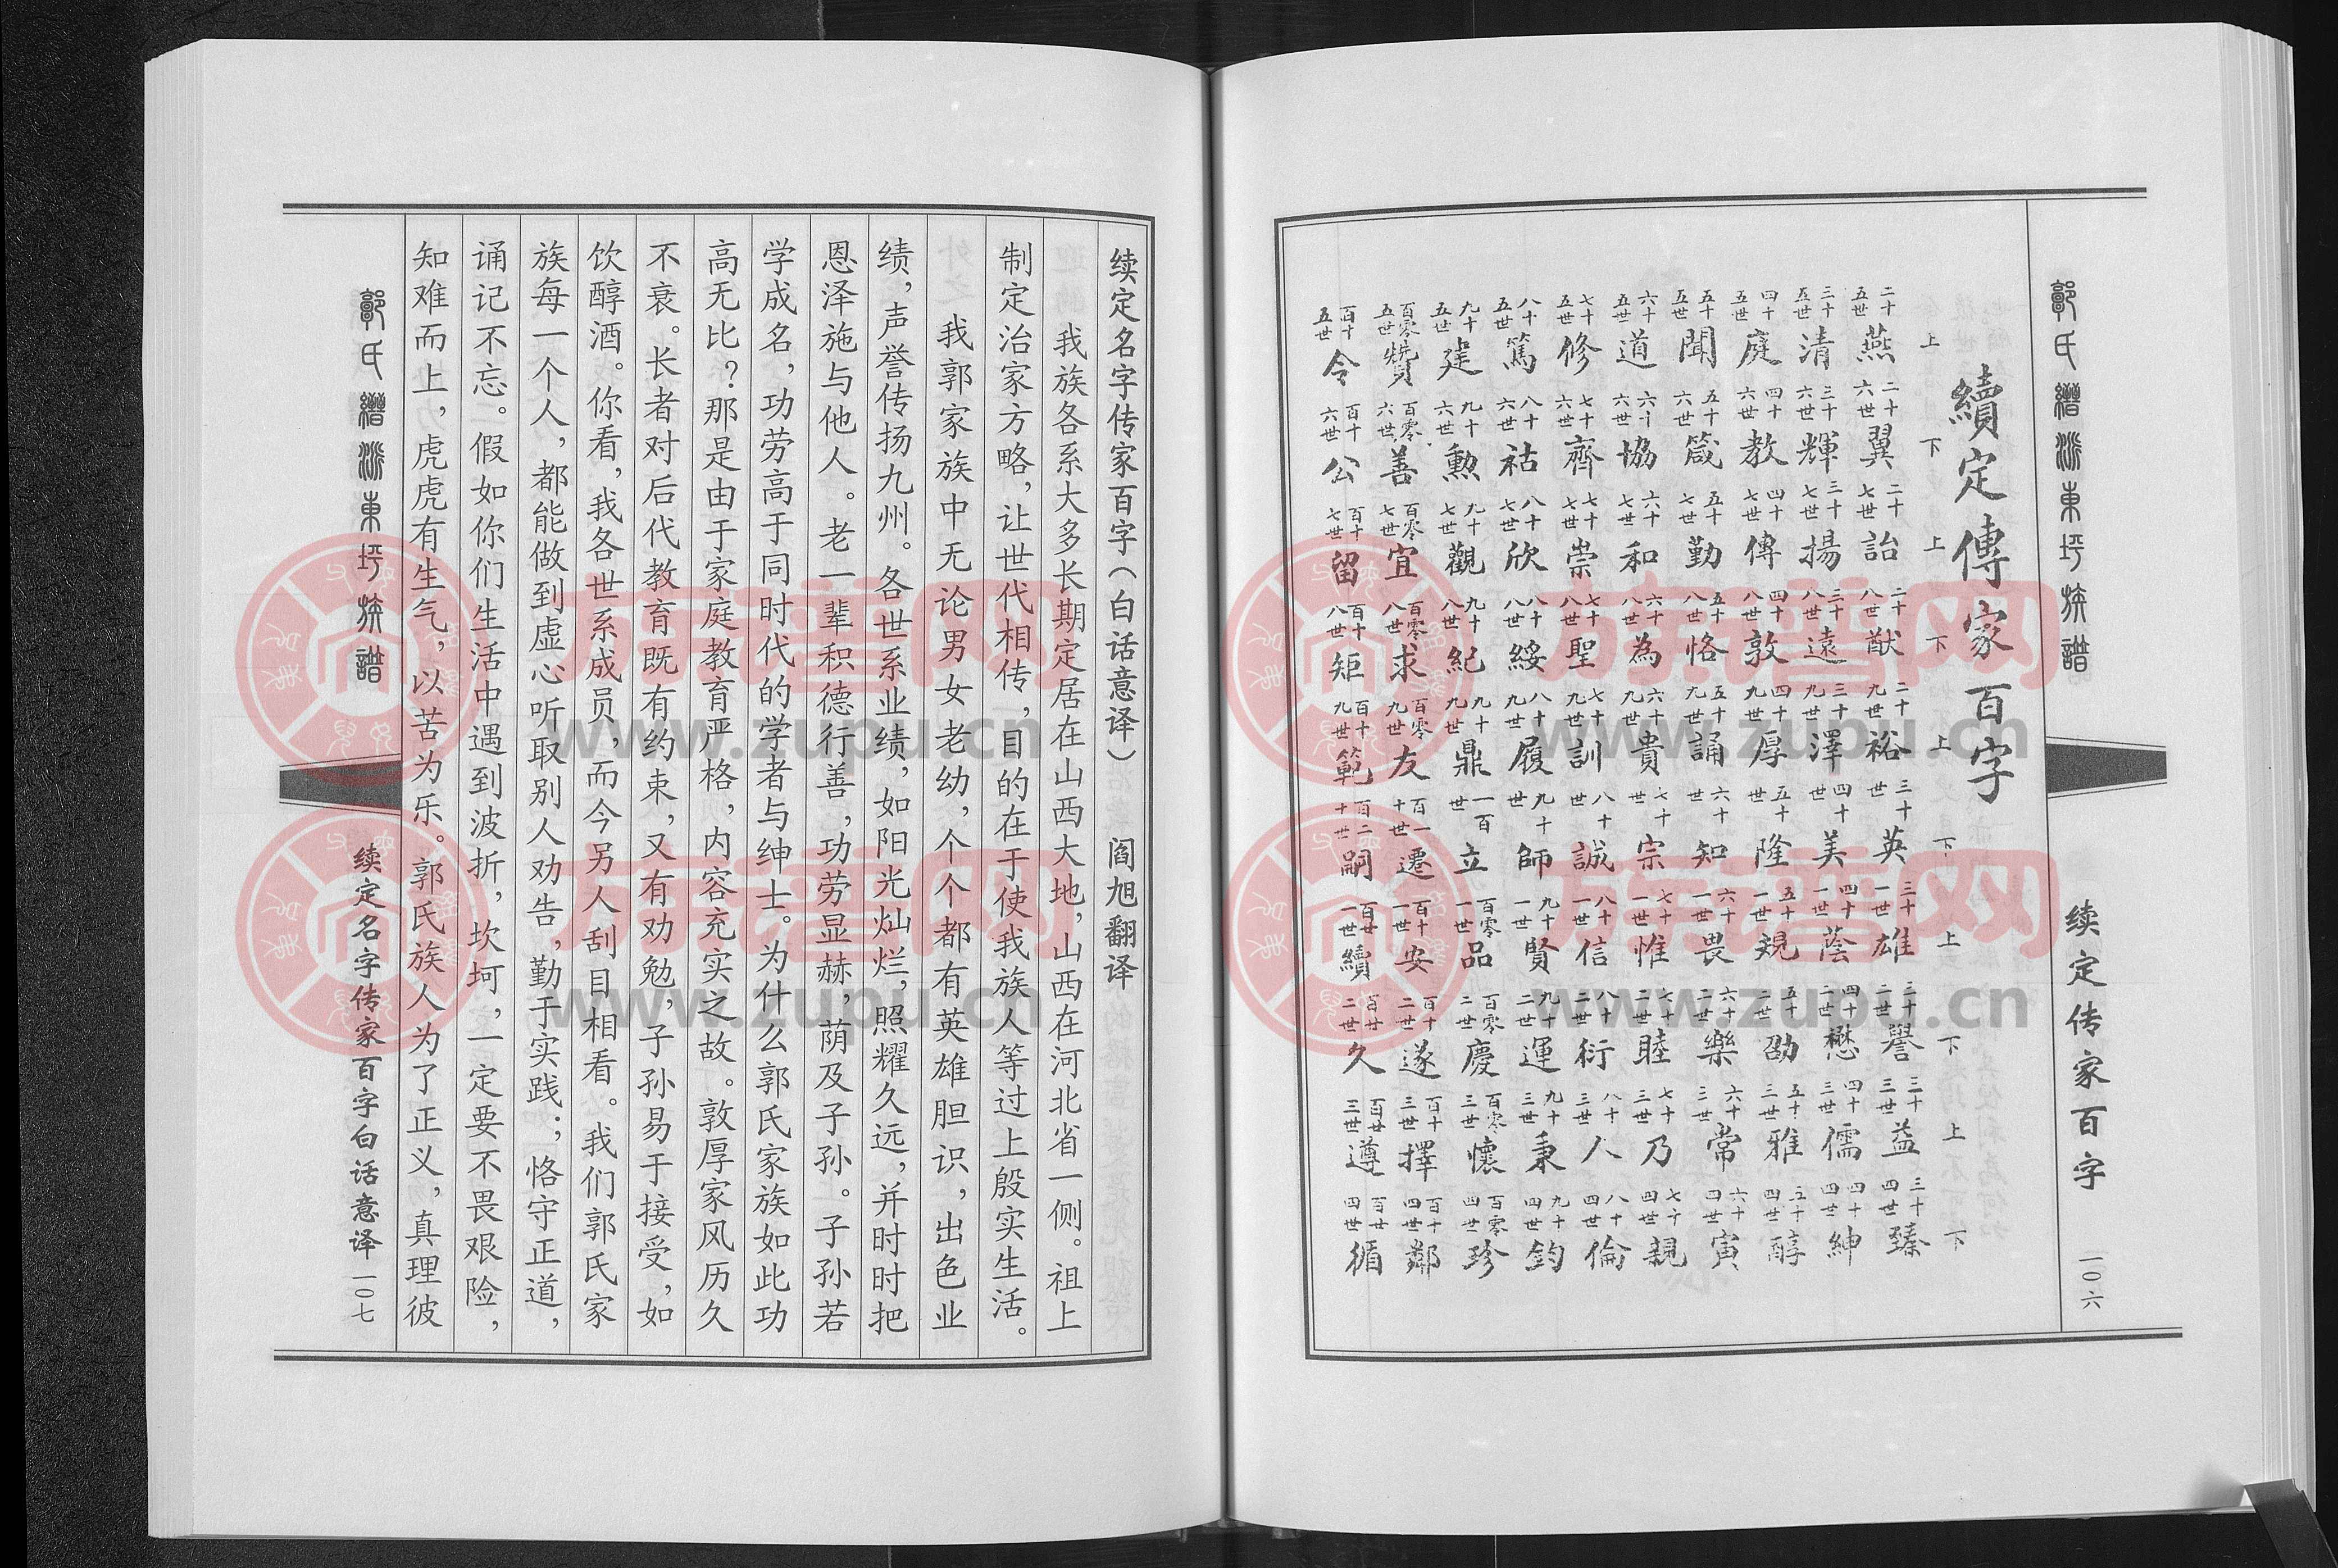 郭氏
東圩族譜
续定传家百字
一〇六
續定傳家百字
上 下 上 下 上 下 上 下 上 下
二十五世 燕 二十六世 翼 二十七世 詒 二十八世 猷 二十九世 裕 三十世 英 三十一世 雄 三十二世 譽 三十三世 益 三十四世 臻
三十五世 清 三十六世 輝 三十七世 揚 三十八世 遠 三十九世 澤 四十世 美 四十一世 蔭 四十二世 懋 四十三世 儒 四十四世 紳
四十五世 庭 四十六世 教 四十七世 傳 四十八世 敦 四十九世 厚 五十世 隆 五十一世 規 五十二世 劭 五十三世 雅 五十四世 醇
五十五世 聞 五十六世 箴 五十七世 勤 五十八世 恪 五十九世 誦 六十世 知 六十一世 畏 六十二世 樂 六十三世 常 六十四世 寅
六十五世 道 六十六世 協 六十七世 和 六十八世 為 六十九世 貴 七十世 宗 七十一世 惟 七十二世 睦 七十三世 乃 七十四世 親
七十五世 修 七十六世 齊 七十七世 崇 七十八世 聖 七十九世 訓 八十世 誠 八十一世 信 八十二世 衍 八十三世 人 八十四世 倫
八十五世 篤 八十六世 祜 八十七世 欣 八十八世 綏 八十九世 履 九十世 師 九十一世 賢 九十二世 運 九十三世 秉 九十四世 鈞
九十五世 建 九十六世 勲 九十七世 觀 九十八世 紀 九十九世 鼎 一百世 立 百零一世 品 百零二世 慶 百零三世 懷 百零四世 珍
百零五世 贊 百零六世 善 百零七世 宜 百零八世 求 百零九世 友 百一十世 遷 百十一世 安 百十二世 遂 百十三世 擇 百十四世 鄰
百十五世 令 百十六世 公 百十七世 留 百十八世 矩 百十九世 範 百二十世 嗣 百廿一世 續 百廿二世 久 百廿三世 遵 百廿四世 循
续定名字传家百字（白话意译） 阎旭翻译
我族各系大多长期定居在山西大地，山西在河北省一侧。祖上
制定治家方略，让世代相传，目的在于使我族人等过上殷实生活。
我郭家族中无论男女老幼，个个都有英雄胆识，出色业
绩，声誉传扬九州。各世系业绩，如阳光灿烂，照耀久远，并时时把
恩泽施与他人。老一辈积德行善，功劳显赫，荫及子孙。子孙若
学成名，功劳高于同时代的学者与绅士。为什么郭氏家族如此功
高无比？那是由于家庭教育严格，内容充实之故。敦厚家风历久
不衰。长者对后代教育既有约束，又有劝勉，子孙易于接受，如
饮醇酒。你看，我各世系成员，而今另人刮目相看。我们郭氏家
族每一个人，都能做到虚心听取别人劝告，勤于实践；恪守正道，
诵记不忘。假如你们生活中遇到波折，坎坷，一定要不畏艰险，
知难而上，虎虎有生气，以苦为乐。郭氏族人为了正义，真理彼
郭氏
東圩族譜
续定名字传家百字白话意译
一〇七
族谱网
www.zupu.cn
族谱网
www.zupu.cn
族谱网
www.zupu.cn
族谱网
www.zupu.cn